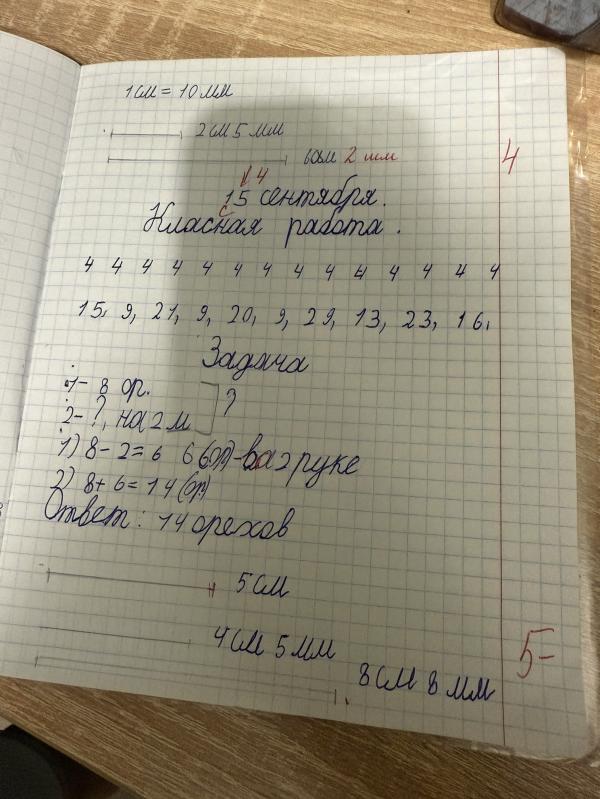 1 см = 10 мм
2 см 5 мм
6 см 2 мм
4
14
15 сентября.
с
Класная работа.
4 4 4 4 4 4 4 4 4 4 4 4 4 4
15, 9, 21, 9, 20, 9, 29, 13, 23, 16,
Задача
1 - 8 ор.
2 - ?, на 2 м ?
1) 8 - 2 = 6 6 (ор) - в 2 руке
2) 8 + 6 = 14 (ор)
Ответ: 14 орехов
5 см
4 см 5 мм
5-
8 см 8 мм